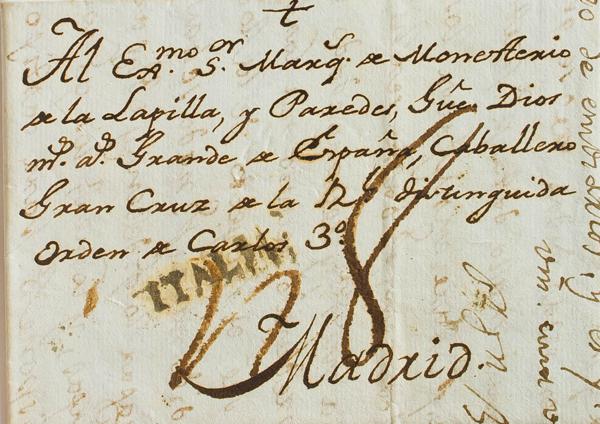 Al Exmo. Sor. Marqs. de Monesterio
de la Lapilla, y Paredes, Gūe. Dios
ms. as. Grande de España, Caballero
Gran Cruz de la Rl. distinguida
orden de Carlos 3º.
ITALIA
8
Madrid.